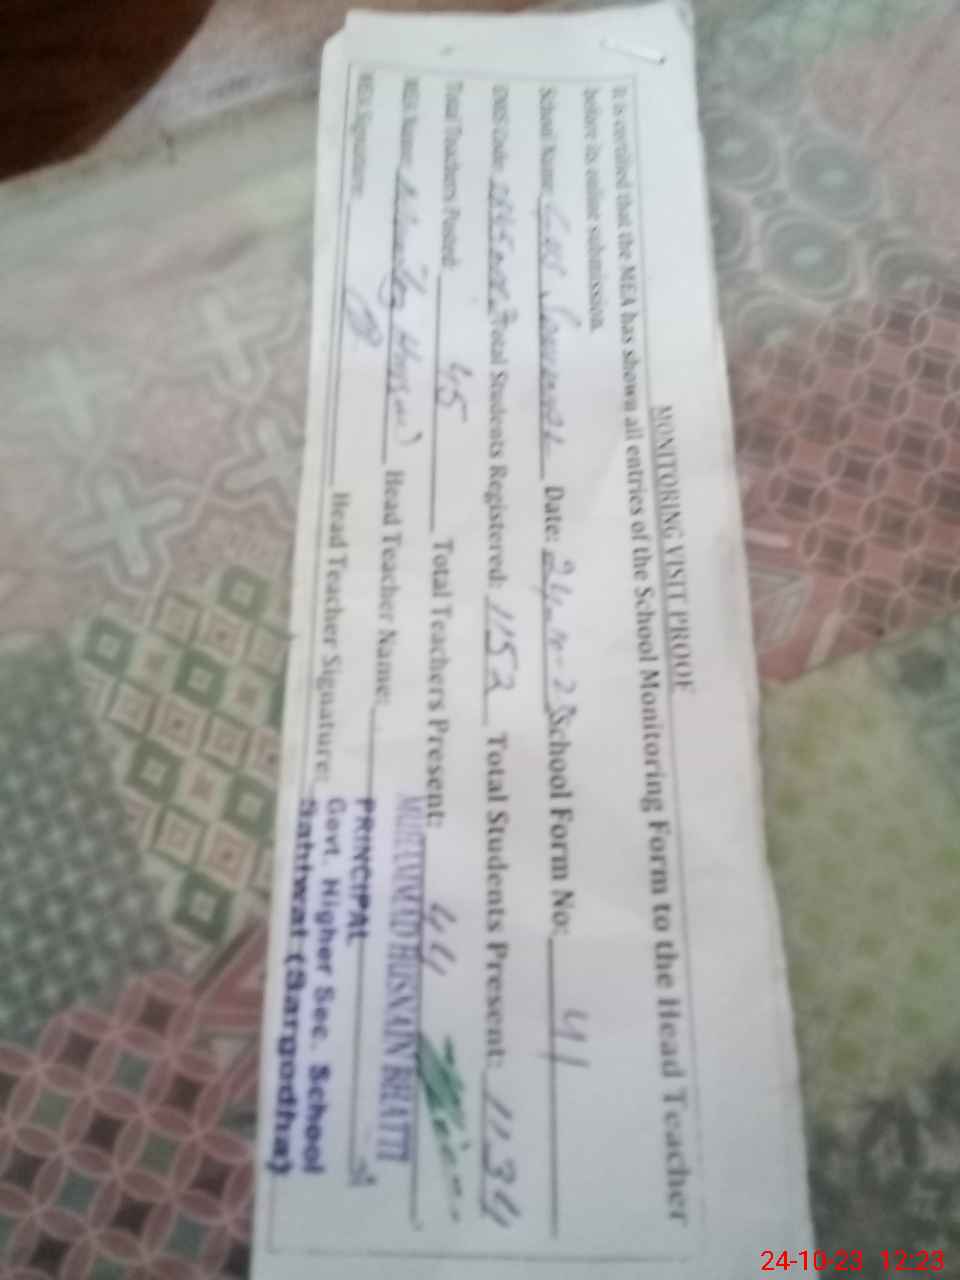 MONITORING VISIT PROOF
It is certified that the MEA has shown all entries of the School Monitoring Form to the Head Teacher
before its online submission.
School Name Date: 24-10-23 School Form No: 41
EMIS Code: Total Students Registered: 1152 Total Students Present: 1134
Total Teachers Posted: 45 Total Teachers Present: 44
MEA Name: Head Teacher Name: MUHAMMAD HUSNAIN BHATTI
MEA Signature: Head Teacher Signature:
PRINCIPAL
Govt. Higher Sec. School
Sahiwal (Sargodha)
24-10-23 12:23